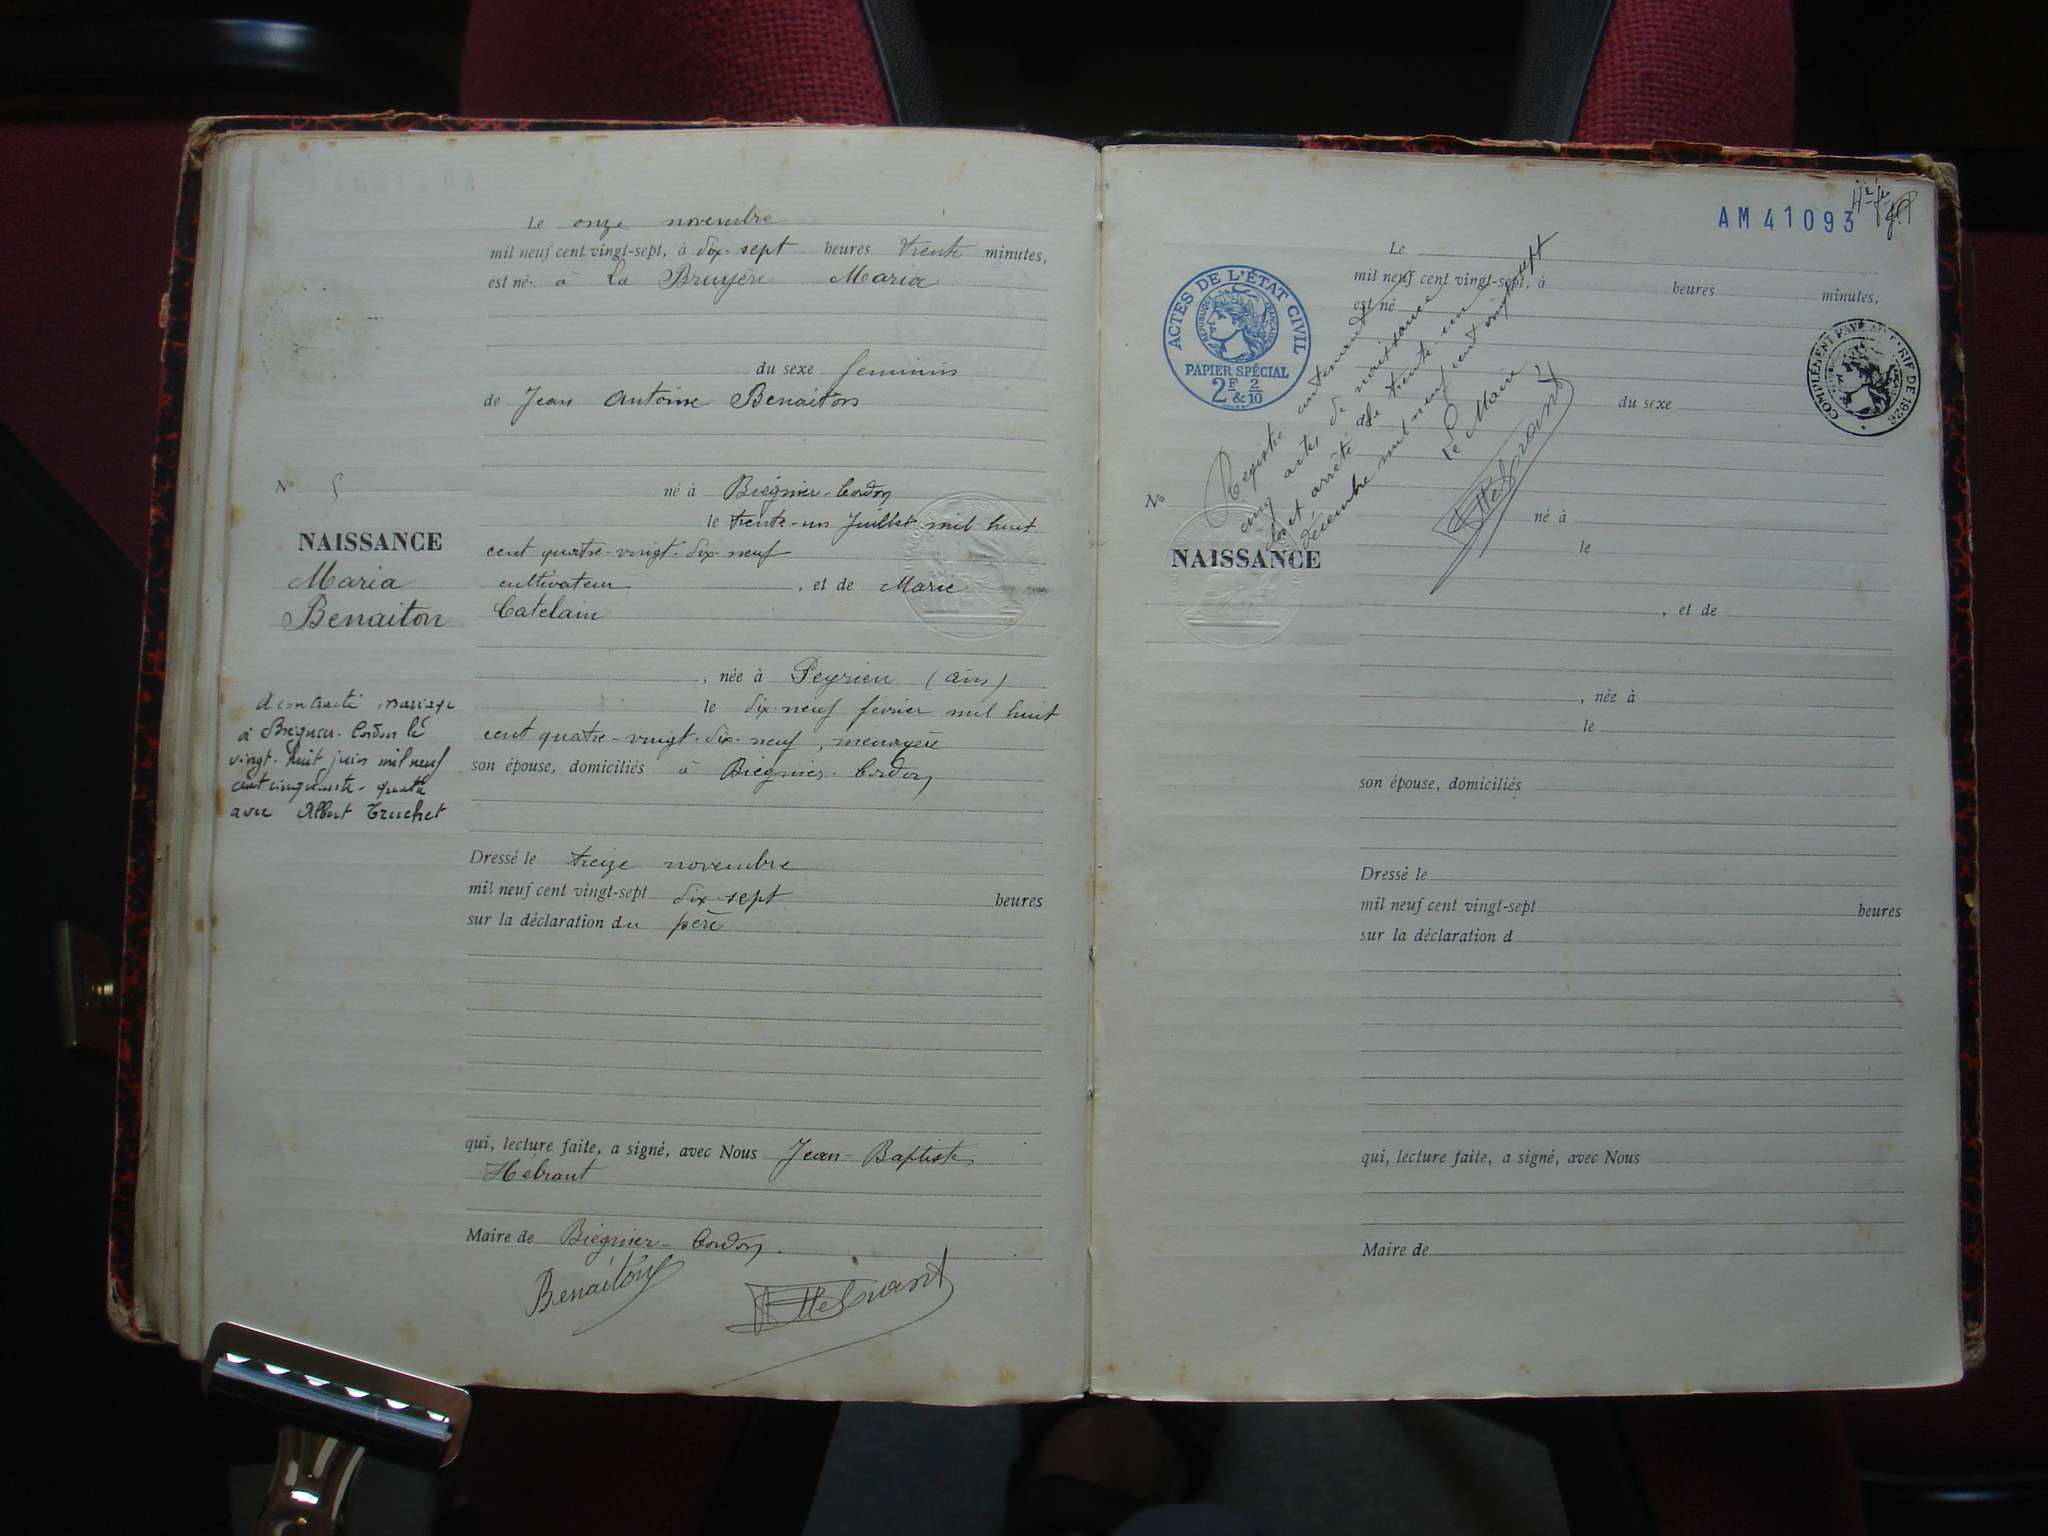 Le onze novembre
mil neuf cent vingt-sept, à dix-sept heures trente minutes,
est né à La Bruyère Maria
du sexe féminin
de Jean Antoine Benaiton
N° 5
né à Brégnier-Cordon
le trente-un Juillet mil huit
cent quatre-vingt-dix-neuf
cultivateur, et de Marie
Catelain
NAISSANCE
Maria
Benaiton
, née à Peyrieu (ain)
le dix-neuf février mil huit
cent quatre-vingt-dix-neuf, menagère
son épouse, domiciliés à Brégnier-Cordon
A contracté mariage
à Brégnier-Cordon le
vingt-huit juin mil neuf
cent cinquante-quatre
avec Albert Truchet
Dressé le treize novembre
mil neuf cent vingt-sept dix-sept heures
sur la déclaration du père
qui, lecture faite, a signé, avec Nous Jean-Baptiste
Hebrant
Maire de Brégnier-Cordon.
Benaiton
Hebrant
AM 41093
ACTES DE L'ÉTAT CIVIL
RÉPUBLIQUE FRANÇAISE
PAPIER SPÉCIAL
2F 2/10
&
COMPLÉMENT PAYÉ TARIF DE 1926
Le
mil neuf cent vingt-sept, à heures minutes,
est né
du sexe
de
N°
né à
le
NAISSANCE
, et de
, née à
le
son épouse, domiciliés
Dressé le
mil neuf cent vingt-sept heures
sur la déclaration d
qui, lecture faite, a signé, avec Nous
Maire de
Registre contenant
cinq actes de naissance
clos et arrêté le trente-un
décembre mil neuf cent vingt sept
le Maire
Hebrant